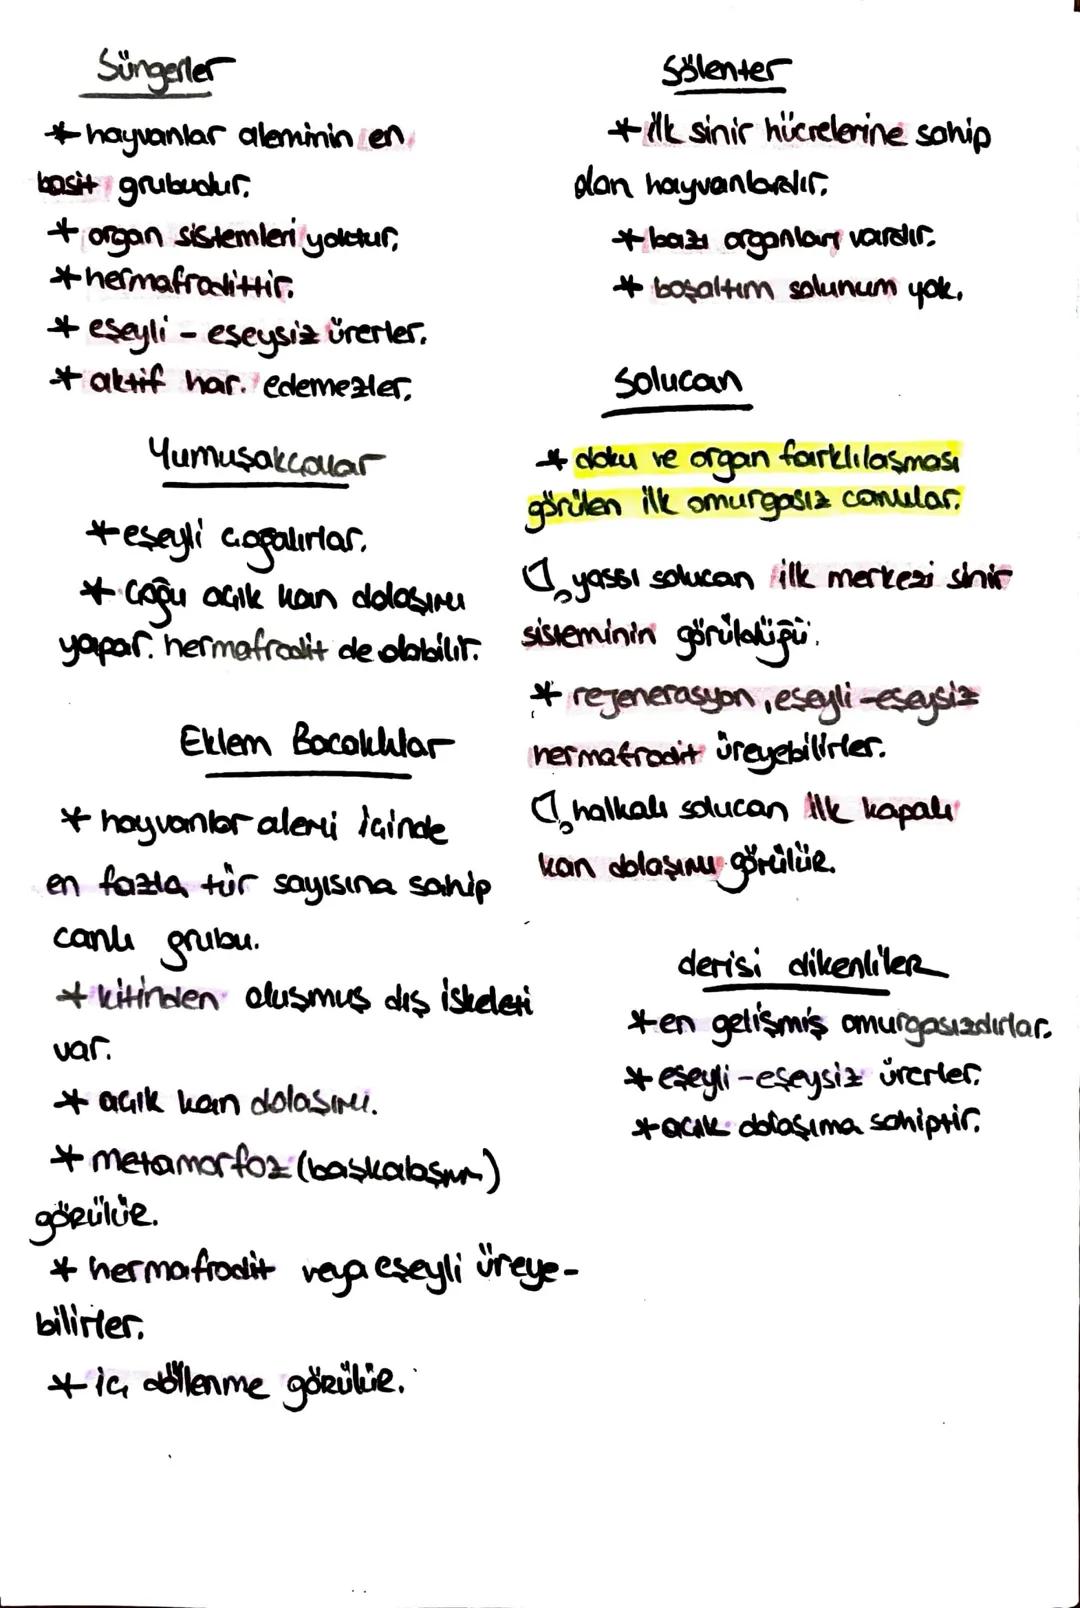 Süngerler
* hayvanlar aleminin en
basit grubudur.
* organ sistemleri yoktur.
* hermafrodittir.
* eşeyli - eşeysiz ürerler.
* aktif har. edemezler.
Yumuşakçalar
* eşeyli çoğalırlar.
* Çoğu açık kan dolaşımı
yapar. hermafrodit de olabilir.
Eklem Bacaklılar
* hayvanlar alemi içinde
en fazla tür sayısına sahip
canlı grubu.
* kitinden oluşmuş dış iskeleti
var.
* açık kan dolaşımı.
* metamorfoz (başkalaşım)
görülür.
* hermafrodit veya eşeyli üreye-
bilirler.
* iç döllenme görülür.
Sölenter
* ilk sinir hücrelerine sahip
olan hayvanlardır.
* bazı organları vardır.
* boşaltım solunum yok.
Solucan
* doku ve organ farklılaşması
görülen ilk omurgasız canlılar.
yassı solucan ilk merkezi sinir
sisteminin görüldüğü.
* rejenerasyon, eşeyli-eşeysiz
hermafrodit üreyebilirler.
halkalı solucan ilk kapalı
kan dolaşımı görülür.
derisi dikenliler
* en gelişmiş omurgasızdırlar.
* eşeyli - eşeysiz ürerler.
* açık dolaşıma sahiptir.